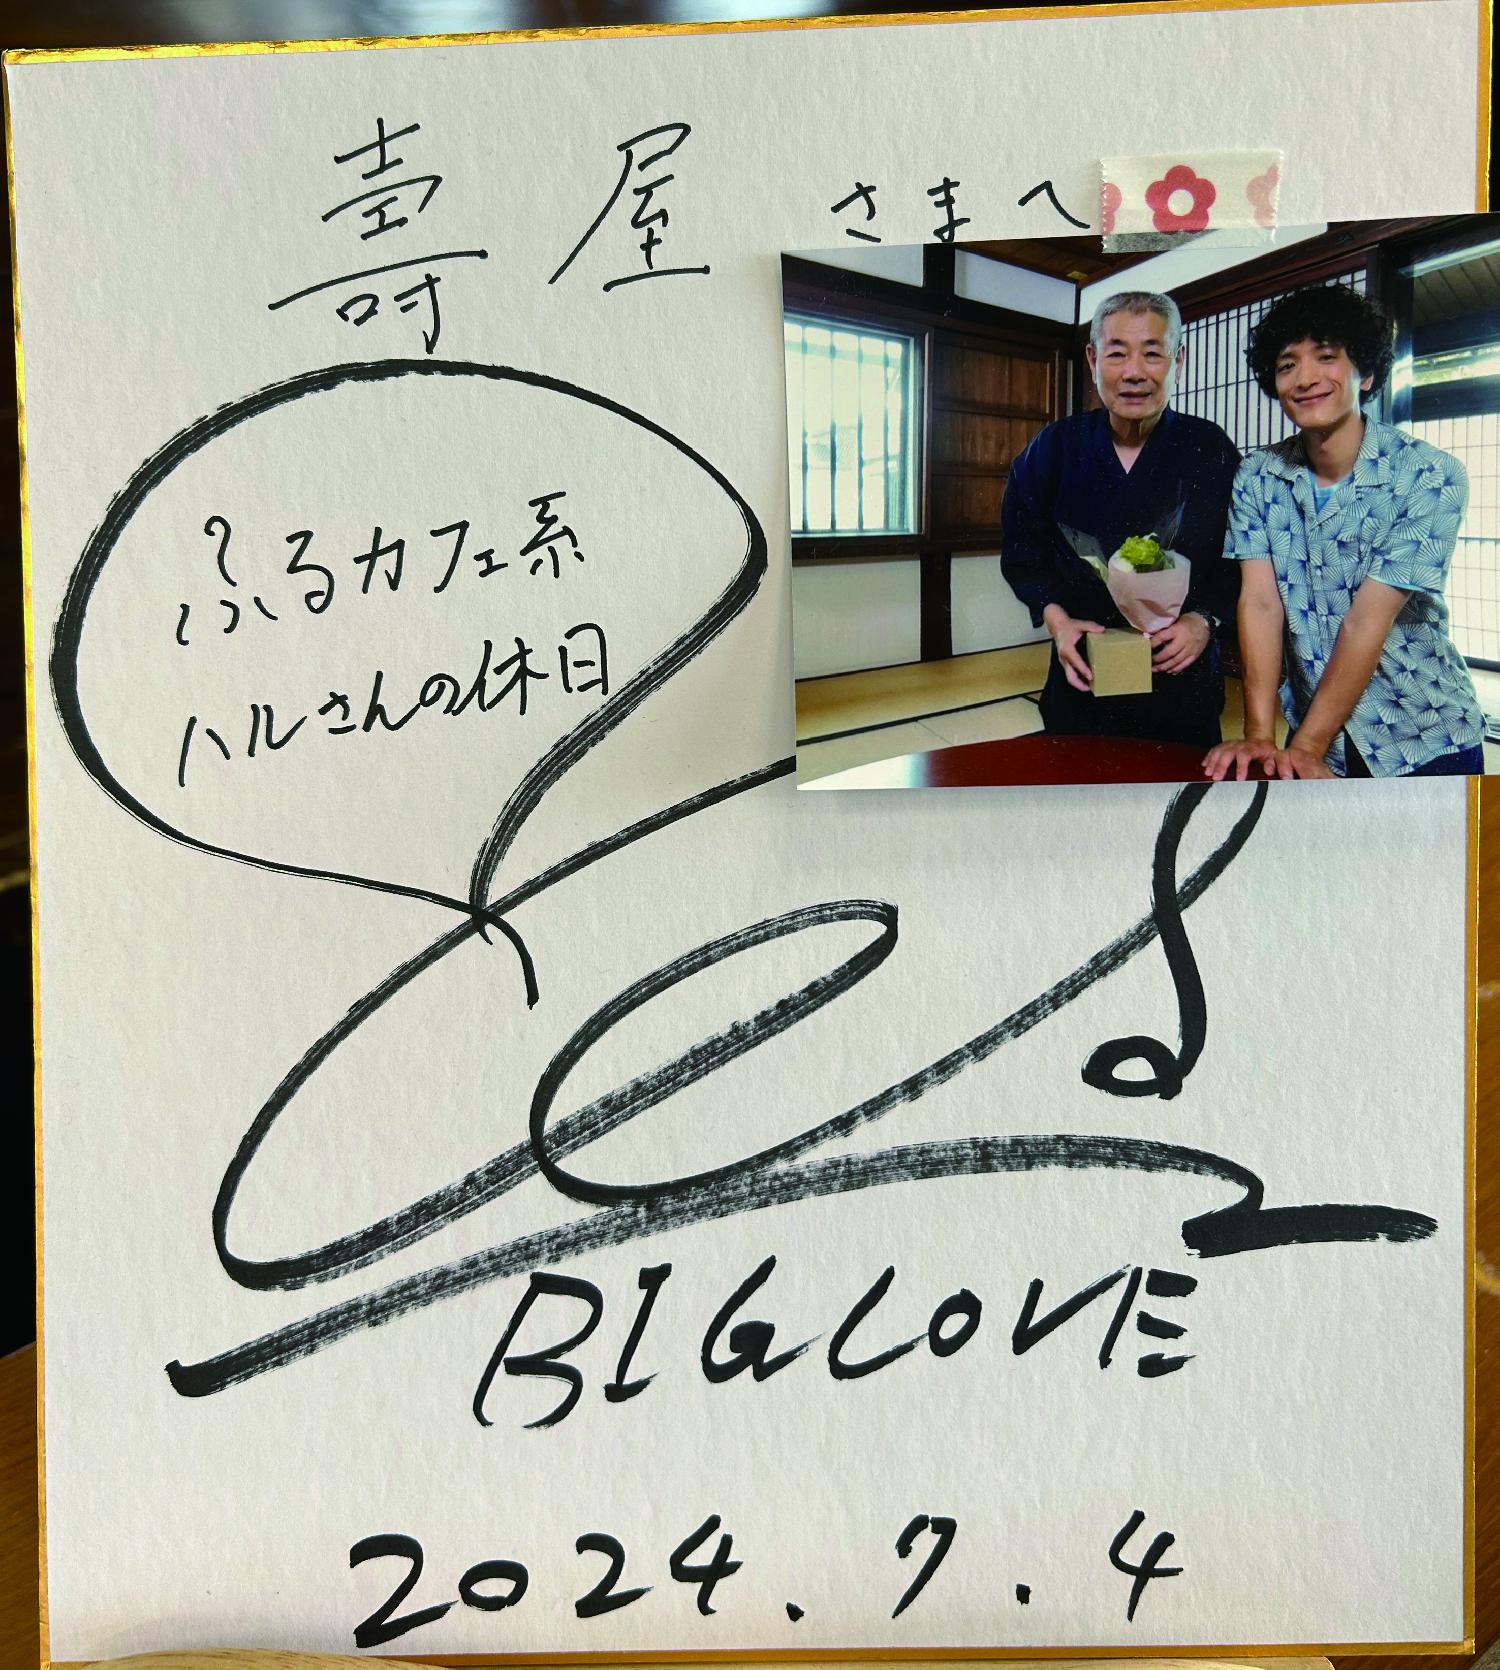 壽屋 さまへ
ふるカフェ系
ハルさんの休日
BIG LOVE
2024.7.4